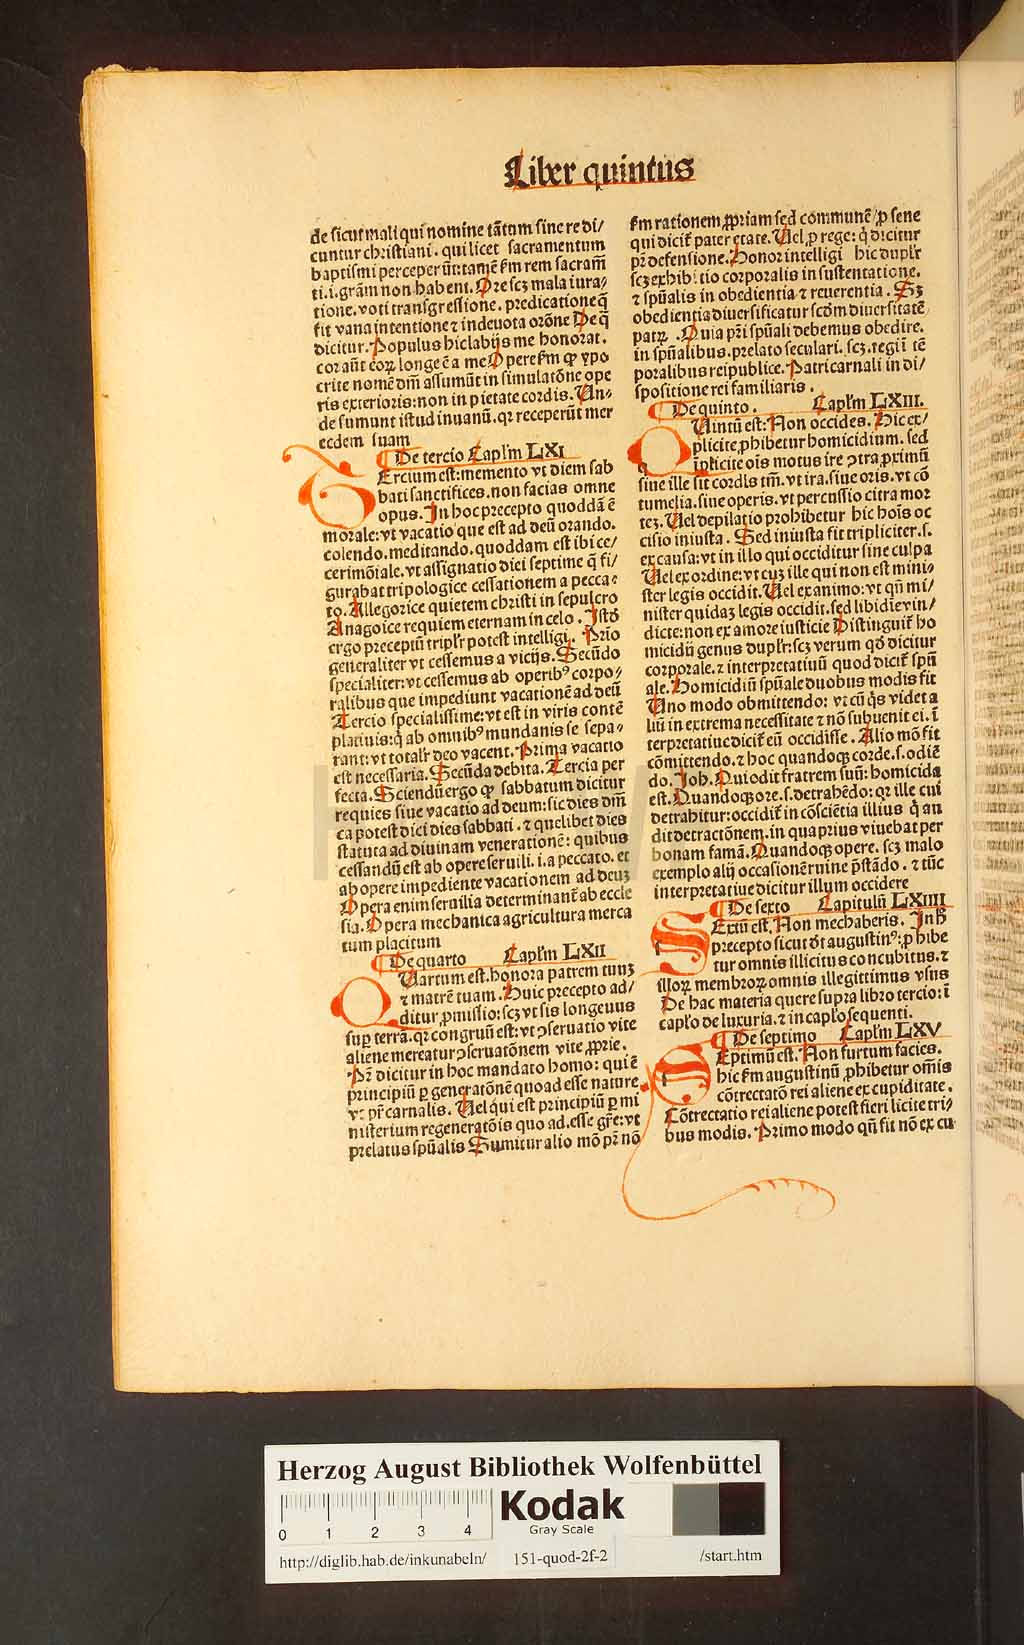 Liber quintus
de sicut mali qui nomine tãtum sine re di/
cuntur christiani. qui licet sacramentum
baptismi perceperũt: tamẽ s̃m rem sacram̃
ti. i. gr̃am non habent. Ore scʒ mala iura/
tione. voti transgressione. predicatione q̃
fit vana intentione ⁊ indeuota orõne De q̃
dicitur. Populus hic labijs me honorat.
cor aũt eoꝝ longe ẽ a me Opere s̃m ꝙ ypo
crite nomẽ dñi assumũt in simulatõne ope
ris exterioris: non in pietate cordis. Un-
de sumunt istud in uanũ. qꝛ receperũt mer
cedem suam
De tercio Capl'm LXI
TErcium est: memento vt diem sab
bati sanctifices. non facias omne
opus. In hoc precepto quoddã ẽ
morale: vt vacatio que est ad deũ orando.
colendo. meditando. quoddam est ibi ce/
cerimõiale. vt assignatio diei septime q̃ fi/
gurabat tripologice cessationem a pecca-
to. Allegorice quietem christi in sepulcro
Anagoice requiem eternam in celo. Istđ
ergo preceptũ tripl'r potest intelligi. Prio
generaliter vt cessemus a vicijs. Secũdo
specialiter: vt cessemus ab operibꝰ corpo/
ralibus que impediunt vacationẽ ad deũ
Tercio specialissime: vt est in viris contẽ
platiuis: q̃ ab omnibꝰ mundanis se sepa-
rant: vt total'r deo vacent. Prima vacatio
est necessaria. Secũda debita. Tercia per
fecta. Sciendũ ergo ꝙ sabbatum dicitur
requies siue vacatio ad deum: sic dies dñi
ca potest dici dies sabbati. ⁊ quelibet dies
statuta ad diuinam venerationẽ: quibus
cessandũ est ab opere seruili. i. a peccato. et
ab opere impediente vacationem ad deuʒ
Opera enim seruilia determinant̃ ab eccle
sia. Opera mechanica agricultura merca
tum placitum
De quarto Capl'm LXII
QUartum est. honora patrem tuuʒ
⁊ matrẽ tuam. Huic precepto ad/
ditur ꝓmissio: scʒ vt sis longeuus
suꝑ terrã. qꝛ congruũ est: vt ꝯseruatio vite
aliene mereatur ꝯseruatõnem vite ꝓprie.
Pr̃ dicitur in hoc mandato homo: qui ẽ
principiũ ꝑ generatõnẽ quoad esse nature
vt pr̃ carnalis. Uel qui est principiũ ꝑ mi
nisterium regeneratõis quo ad. esse gr̃e: vt
prelatus spũalis Sumitur alio mõ pr̃ nõ
s̃m rationem ꝓpriam sed communẽ ꝓ sene
qui dicit̃ pater etate. Uel ꝓ rege: q̃ dicitur
pr̃ defensione. Honor intelligi hic dupl'r
scʒ exhibitio corporalis in sustentatione.
⁊ spũalis in obedientia ⁊ reuerentia. Sʒ
obedientia diuersificatur scđm diuersitatẽ
patꝝ. Quia pr̃i spũali debemus obedire.
in spũalibus. prelato seculari. scʒ. regiĩ tẽ
poralibus reipublice. Patri carnali in di/
spositione rei familiaris.
De quinto. Capl'm LXIII.
QUintũ est: Non occides. Hic ex/
plicite ꝓhibetur homicidium. sed
iplicite oĩs motus ire ꝯtra ꝓximũ
siue ille sit cordis tm̃. vt ira. siue oris. vt cõ
tumelia. siue operis. vt percussio citra mor
teʒ. Uel depilatio prohibetur hic hoĩs oc
cisio iniusta. Sed iniusta fit tripliciter. s.
ex causa: vt in illo qui occiditur sine culpa
Uel ex ordine: vt cuʒ ille qui non est mini-
ster legis occidit. Uel ex animo: vt qñ mi/
nister quidaʒ legis occidit. sed libidie vin/
dicte: non ex amore iusticie Distinguit̃ ho
micidii genus dupl'r: scʒ verum qđ dicitur
corporale. ⁊ interpretatiuũ quod dicit̃ spũ
ale. Homicidiũ spũale duobus modis fit
Uno modo obmittendo: vt cũ q̃s videt a
liũ in extrema necessitate ⁊ nõ subuenit ei. ĩ
terpretatiue dicit̃ eũ occidisse. Alio mõ fit
cõmittendo. ⁊ hoc quandoqʒ corde. s. odiẽ
do. Joh. Qui odit fratrem suũ: homicida
est. Quandoqʒ ore. s. detrahẽdo: qꝛ ille cui
detrahitur: occidit̃ in cõsciẽtia illius q̃ au
dit detractõnem. in qua prius viuebat per
bonam famã. Quandoqʒ opere. scʒ malo
exemplo alij occasionẽ ruine p̃stãdo. ⁊ tũc
interpretatiue dicitur illum occidere
De sexto Capitulũ LXIIII
SExtũ est. Non mechaberis. In h̃
precepto sicut đt augustinꝰ: ꝓhibe
tur omnis illicitus concubitus. ⁊
illoꝝ membroꝝ omnis illegittimus vsus
De hac materia quere supra libro tercio: ĩ
capl'o de luxuria. ⁊ in capl'o sequenti.
De septimo Capl'm LXV
SEptimũ est. Non furtum facies.
hic s̃m augustinũ ꝓhibetur om̃is
cõtrectatõ rei aliene ex cupiditate.
Cõtrectatio rei aliene potest fieri licite tri/
bus modis. Primo modo qñ fit nõ ex cu
Herzog August Bibliothek Wolfenbüttel
0 1 2 3 4
Kodak
Gray Scale
http://diglib.hab.de/inkunabeln/ 151-quod-2f-2 /start.htm